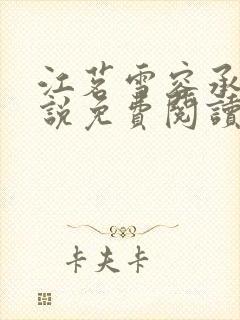 江茗雪容承
說免費閱讀
卡夫卡